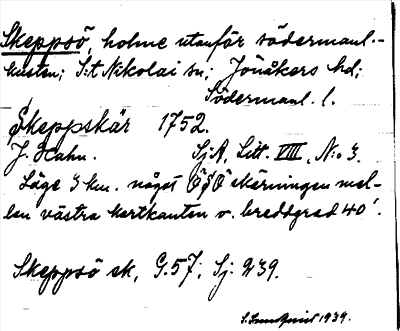 Skeppsö, holme utanför södermanl.-
kusten; S:t Nikolai sn; Jönåkers hd;
Södermanl. l.
Skeppskär 1752.
J. Hahn. SjA, Litt. VIII, N:o 3.
Läge 3 km. något ÖSÖ skärningen mel-
lan västra kartkanten o. breddgrad 40'.
Skeppsö sk, G.57; Sj: 239.
S. Lundquist 1934.